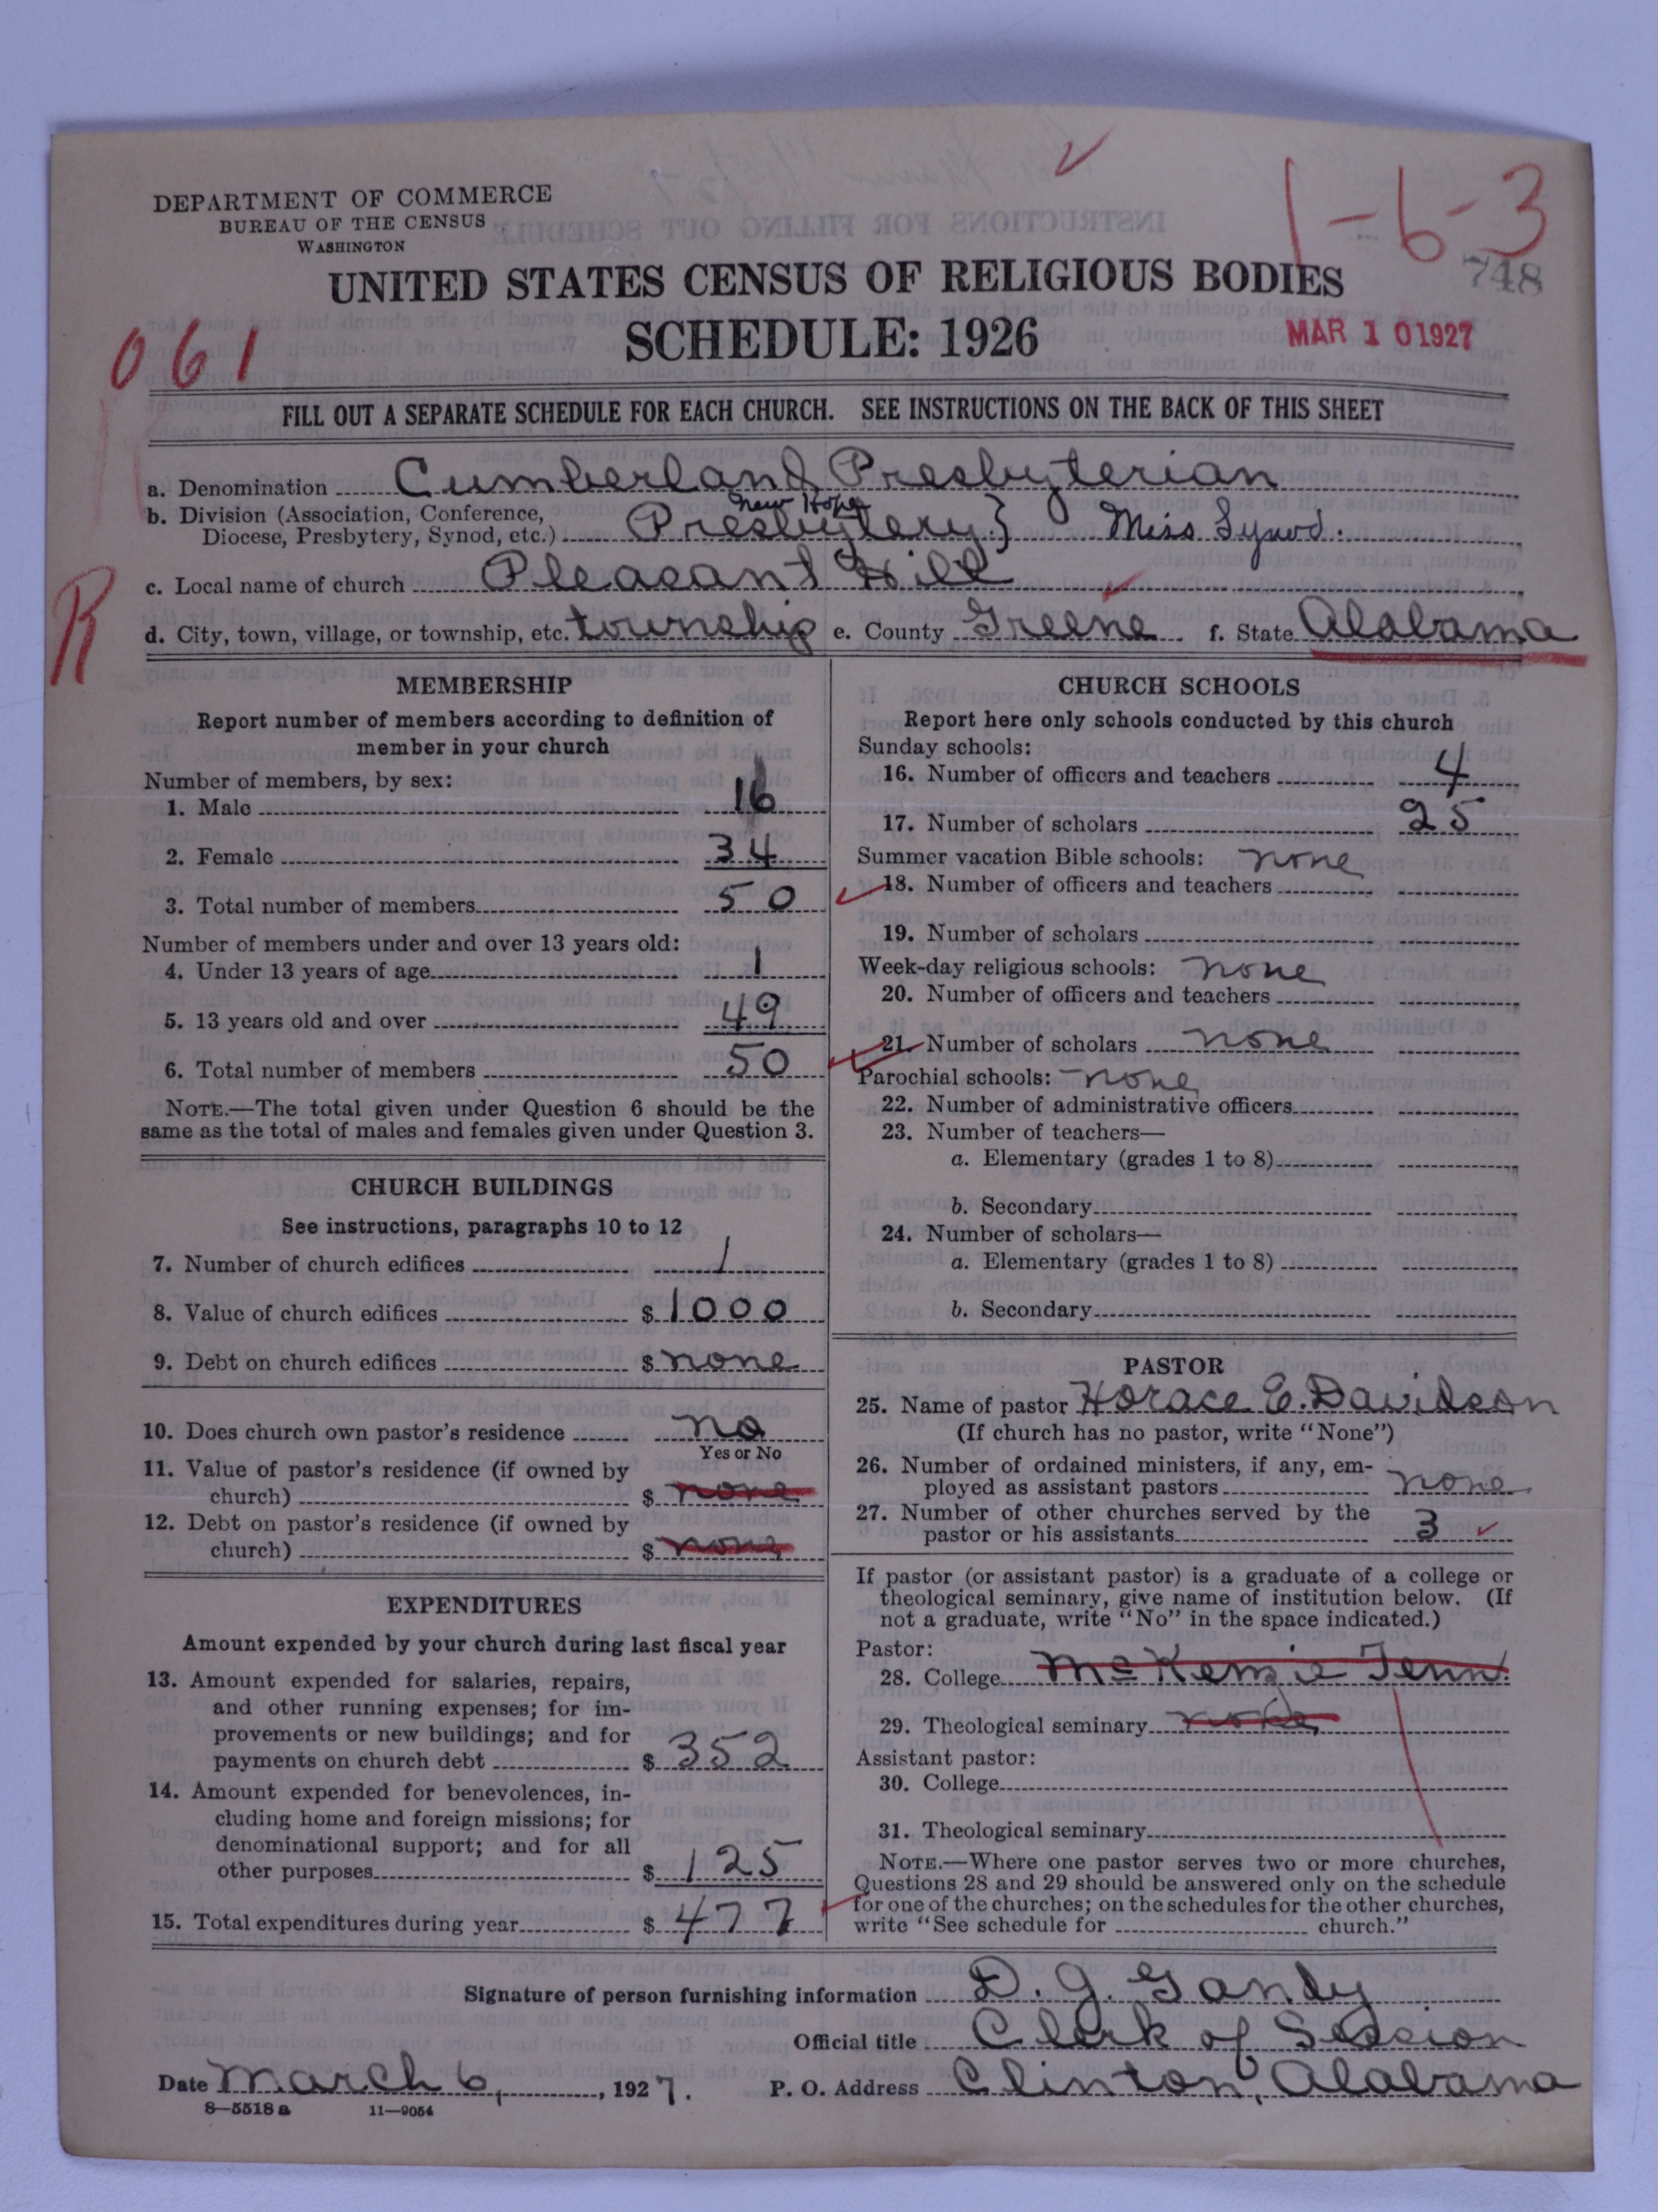 DEPARTMENT OF COMMERCE
BUREAU OF THE CENSUS
WASHINGTON
1-6-3
748
UNITED STATES CENSUS OF RELIGIOUS BODIES
SCHEDULE: 1926
MAR 10 1927
061
FILL OUT A SEPARATE SCHEDULE FOR EACH CHURCH. SEE INSTRUCTIONS ON THE BACK OF THIS SHEET
a. Denomination Cumberland Presbyterian
New Hope
b. Division (Association, Conference,
Diocese, Presbytery, Synod, etc.) Presbytery} Miss Synod.
c. Local name of church Pleasant Hill
R
d. City, town, village, or township, etc. township e. County Greene f. State Alabama
MEMBERSHIP
Report number of members according to definition of
member in your church
Number of members, by sex:
1. Male 16
2. Female 34
3. Total number of members 50
Number of members under and over 13 years old:
4. Under 13 years of age 1
5. 13 years old and over 49
6. Total number of members 50
NOTE.—The total given under Question 6 should be the
same as the total of males and females given under Question 3.
CHURCH BUILDINGS
See instructions, paragraphs 10 to 12
7. Number of church edifices 1
8. Value of church edifices $ 1000
9. Debt on church edifices $ none
10. Does church own pastor's residence no
Yes or No
11. Value of pastor's residence (if owned by
church) $ none
12. Debt on pastor's residence (if owned by
church) $ none
EXPENDITURES
Amount expended by your church during last fiscal year
13. Amount expended for salaries, repairs,
and other running expenses; for im-
provements or new buildings; and for
payments on church debt $ 352
14. Amount expended for benevolences, in-
cluding home and foreign missions; for
denominational support; and for all
other purposes $ 125
15. Total expenditures during year $ 477
CHURCH SCHOOLS
Report here only schools conducted by this church
Sunday schools:
16. Number of officers and teachers 4
17. Number of scholars 25
Summer vacation Bible schools: none
18. Number of officers and teachers
19. Number of scholars
Week-day religious schools: none
20. Number of officers and teachers
21. Number of scholars none
Parochial schools: none
22. Number of administrative officers
23. Number of teachers—
a. Elementary (grades 1 to 8)
b. Secondary
24. Number of scholars—
a. Elementary (grades 1 to 8)
b. Secondary
PASTOR
25. Name of pastor Horace E. Davidson
(If church has no pastor, write "None")
26. Number of ordained ministers, if any, em-
ployed as assistant pastors none
27. Number of other churches served by the
pastor or his assistants 3
If pastor (or assistant pastor) is a graduate of a college or
theological seminary, give name of institution below. (If
not a graduate, write "No" in the space indicated.)
Pastor:
28. College McKenzie Tenn.
29. Theological seminary
Assistant pastor:
30. College
31. Theological seminary
NOTE.—Where one pastor serves two or more churches,
Questions 28 and 29 should be answered only on the schedule
for one of the churches; on the schedules for the other churches,
write "See schedule for church."
Signature of person furnishing information D. J. Gandy
Official title Clerk of Session
Date March 6, 1927. P. O. Address Clinton, Alabama
8—5518 a 11—9054